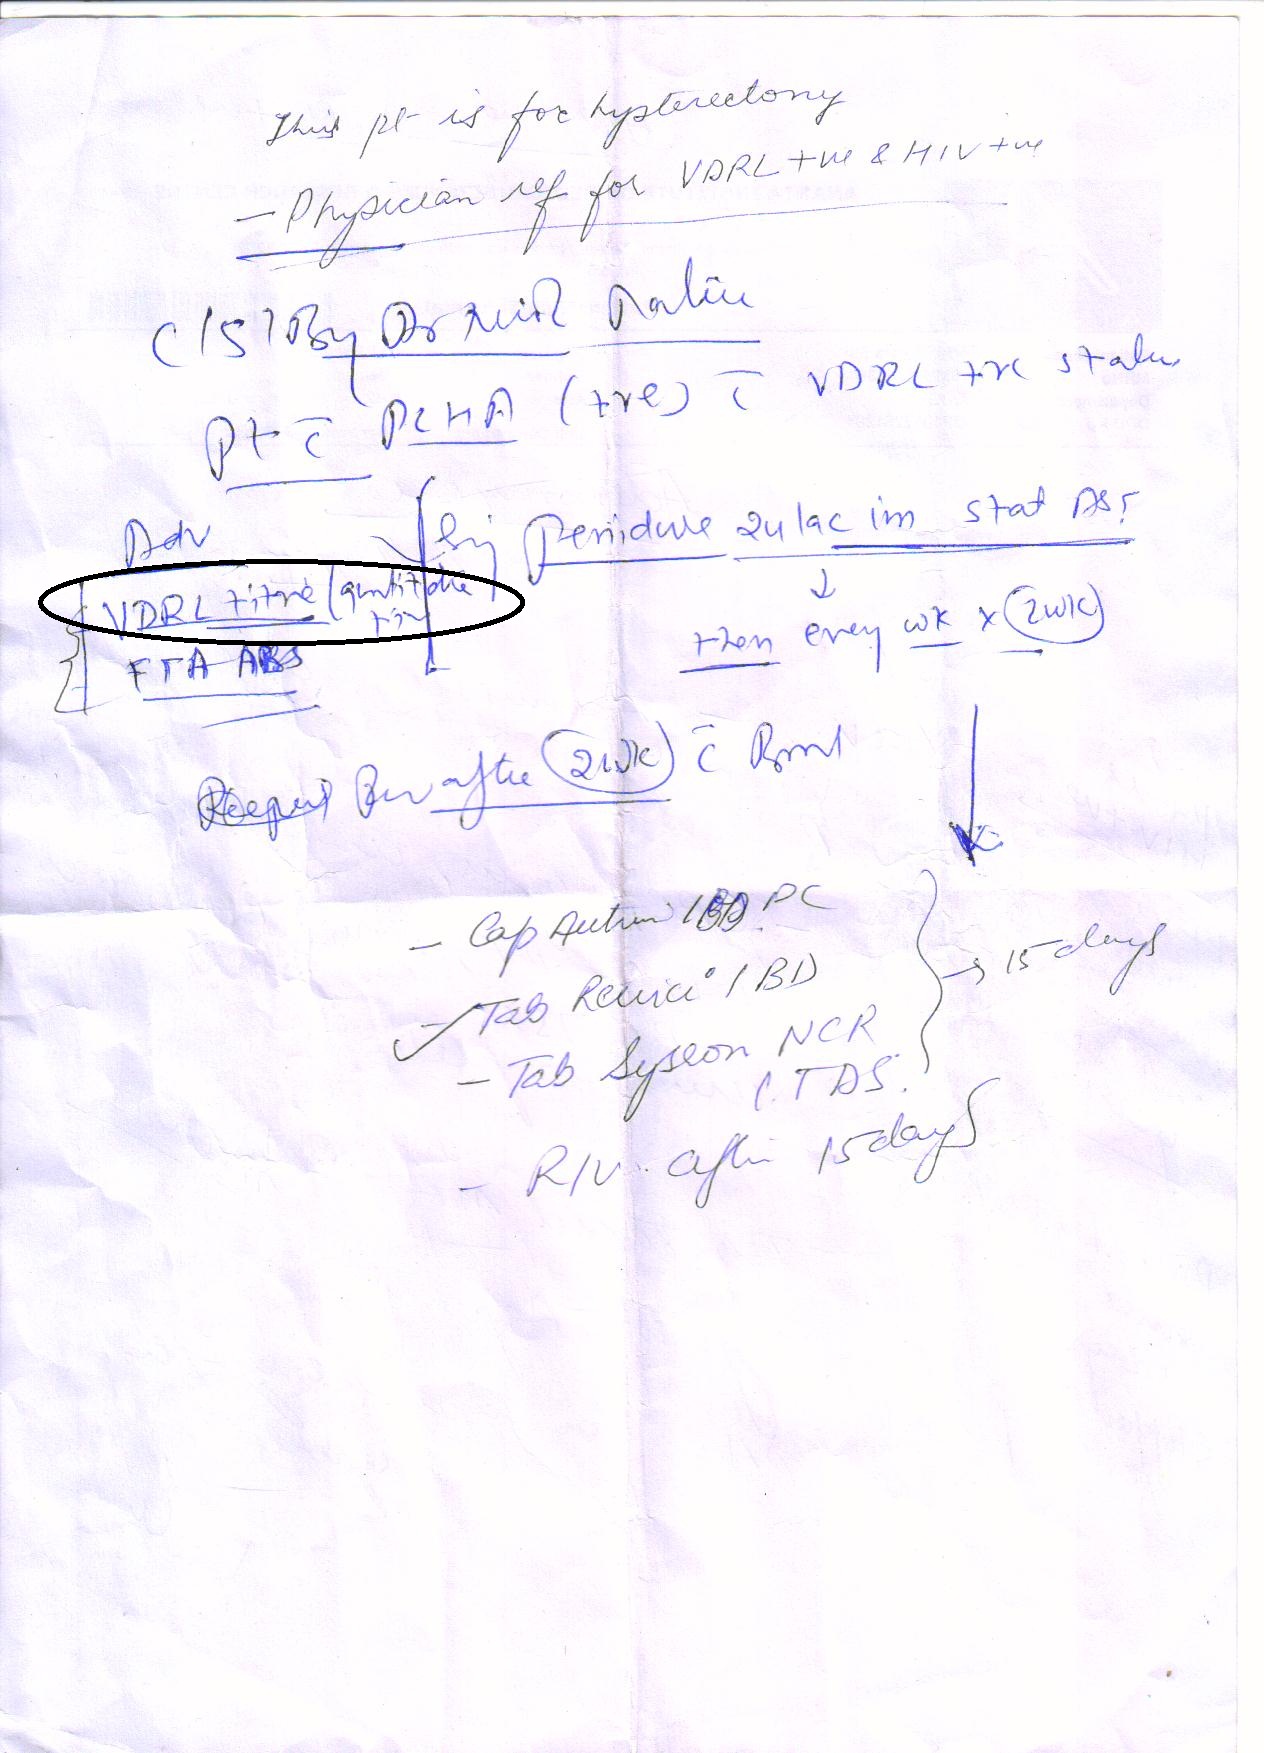 This pt is for hysterectomy
- Physician ref for VDRL +ve & HIV +ve
C/S/By Dr
Pt c̄ PLHA (+ve) c̄ VDRL +ve status
Adv
VDRL titre (quantitative)
FTA ABS
Inj Penidure 24 lac im stat AST
↓
then every wk x 2wk
Rev after 2wk c̄
- Cap 1 BD PC
- Tab 1 BD
- Tab NCR
1 TDS.
→ 15 days
- R/V. after 15 days